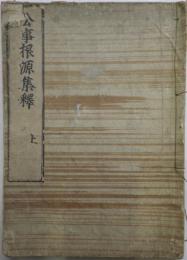 公事根源集釋
上